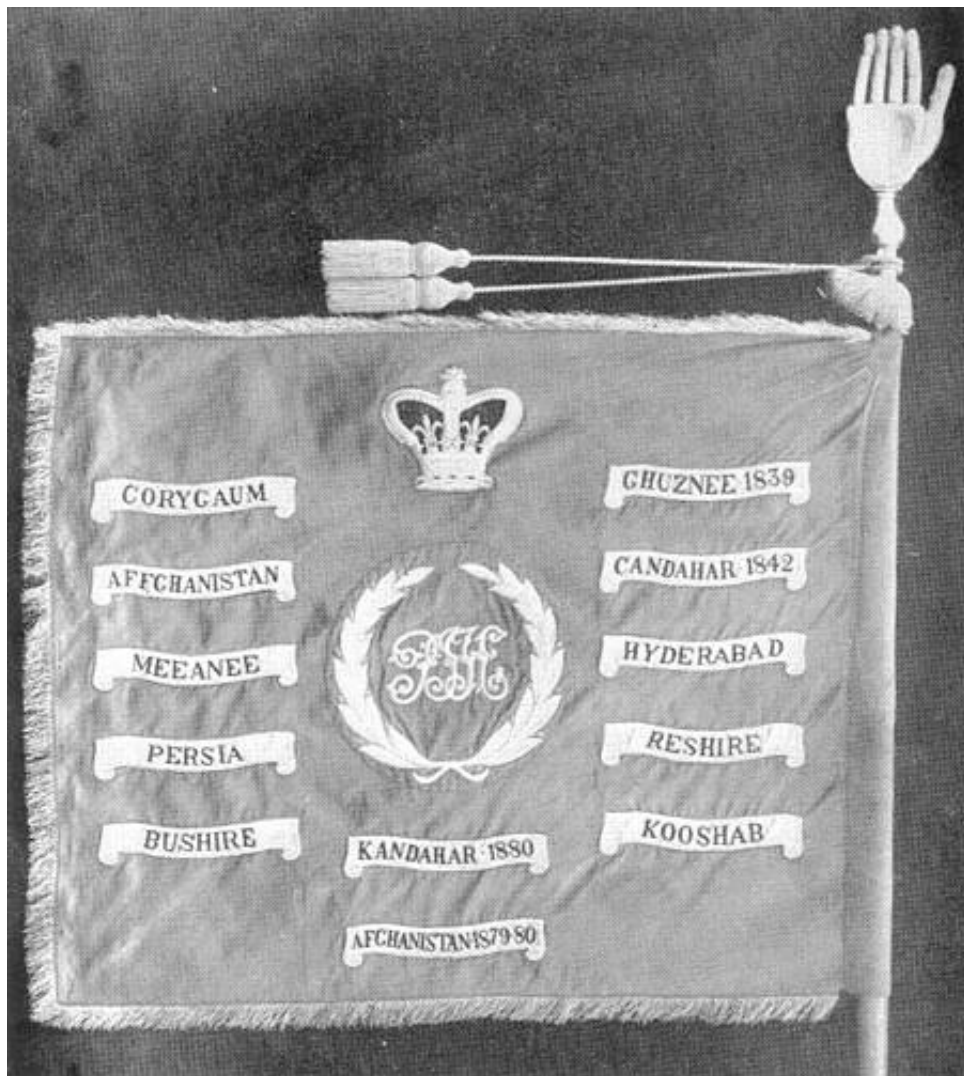 CORYGAUM
AFFGHANISTAN
MEEANEE
PERSIA
BUSHIRE
PJH
KANDAHAR·1880
AFGHANISTAN·1879·80
GHUZNEE·1839
CANDAHAR·1842
HYDERABAD
RESHIRE
KOOSHAB